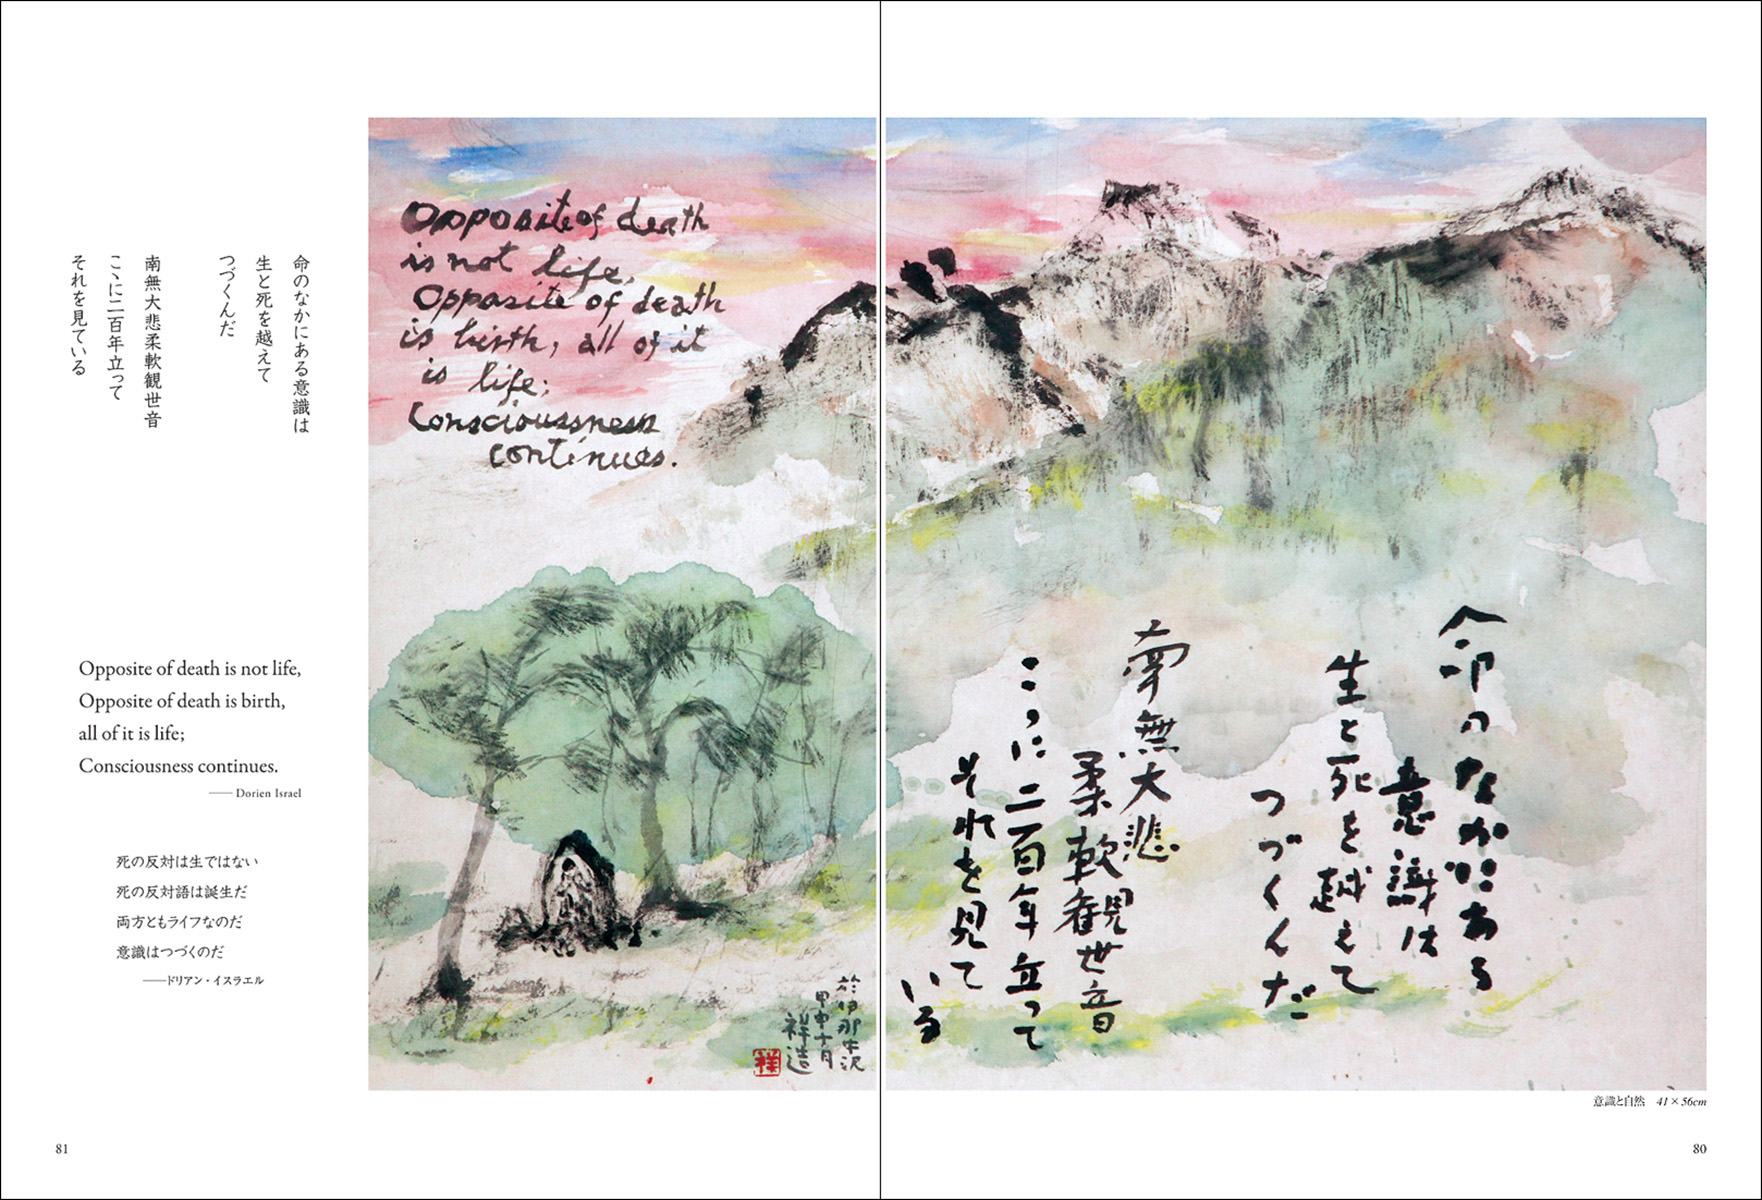 命のなかにある
意識は
生と死を越えて
つづくんだ
南無大悲
柔軟観世音
こゝに二百年立って
それを見て
いる
意識と自然 41×56cm
80
Opposite of death
is not life,
Opposite of death
is birth, all of it
is life;
Consciousness
continues.
於伊那中沢
甲申十月
祥造
祥
命のなかにある意識は
生と死を越えて
つづくんだ
南無大悲柔軟観世音
こゝに二百年立って
それを見ている
Opposite of death is not life,
Opposite of death is birth,
all of it is life;
Consciousness continues.
── Dorien Israel
死の反対は生ではない
死の反対語は誕生だ
両方ともライフなのだ
意識はつづくのだ
──ドリアン・イスラエル
81